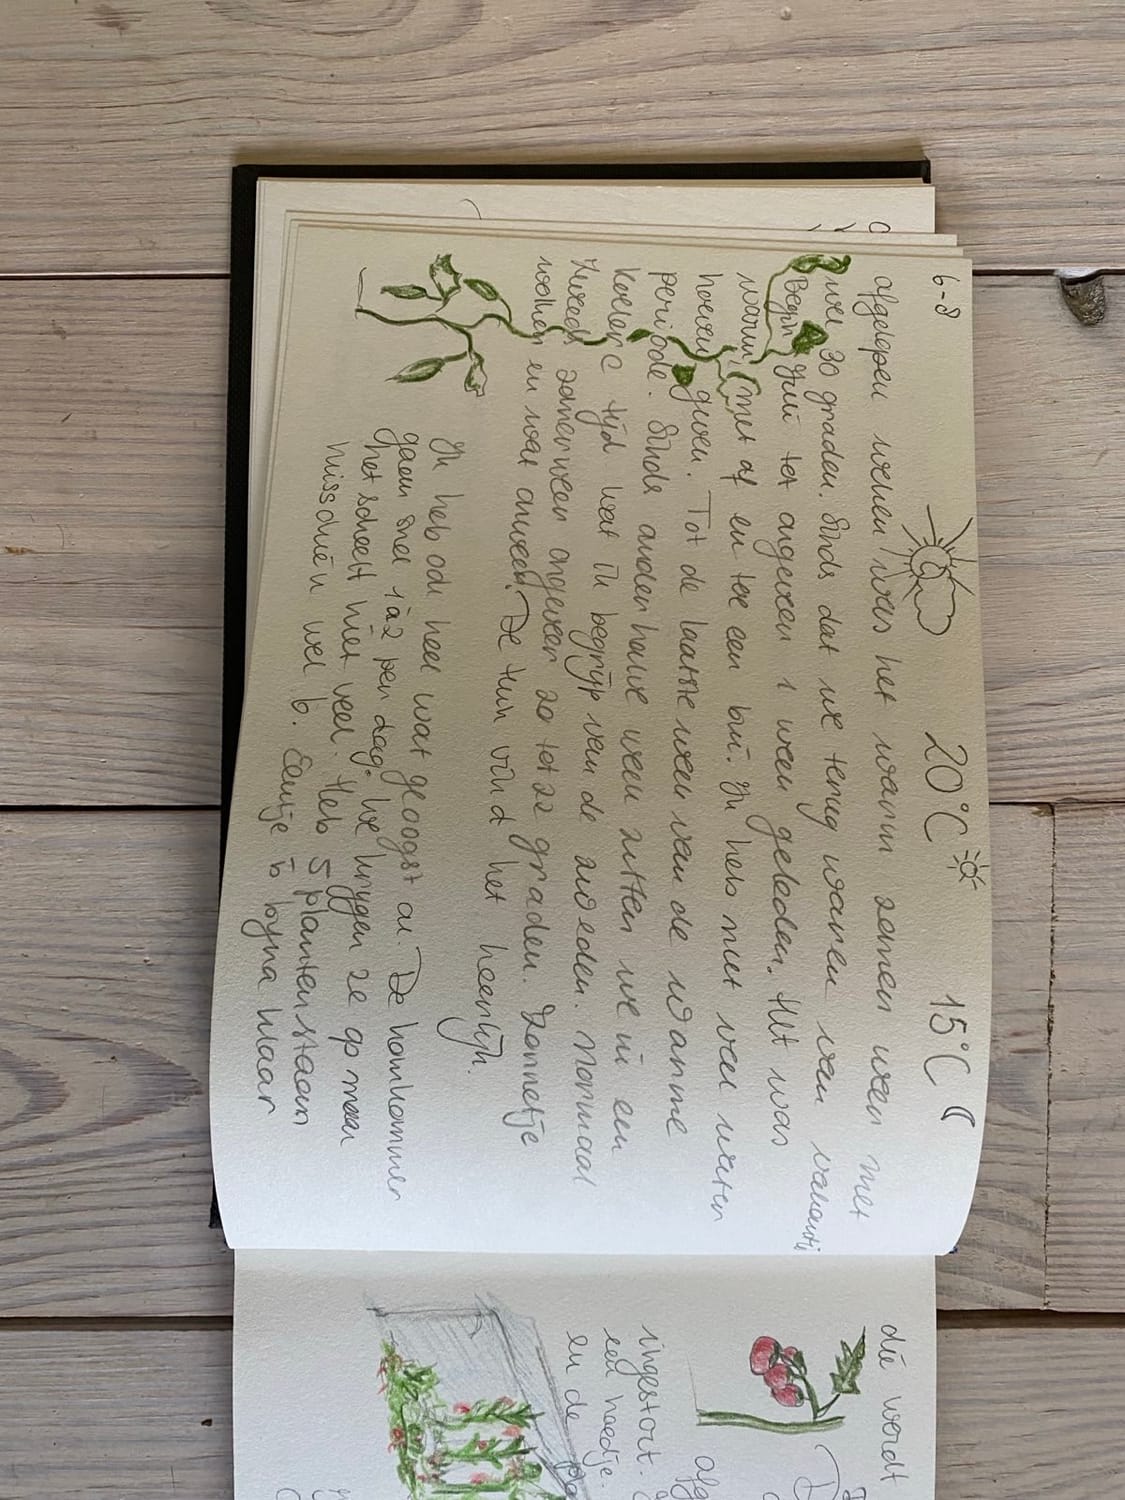 6-8 20°C 15°C
afgelopen weken was het warm zomer weer met
wel 30 graden. Sinds dat we terug waren van vakantie
Begin Juli tot ongeveer 1 week geleden. Het was
warm, met af en toe een bui. Ik heb niet veel water
hoeven geven. Tot de laatste week van de warme
periode. Sinds anderhalve week zitten we in een
koelere tijd wat ik begrijp van de zweden. Normaal
Zweeds zomerweer ongeveer 20 tot 22 graden. Zonnetje
wolken en wat anders! De tuin vind het heerlijk.
Ik heb ook heel wat geoogst al. De komkommer
gaan snel 1 à 2 per dag. We krijgen ze op maar
het scheelt niet veel. Heb 5 planten staan
misschien wel 6. Eentje is bijna klaar
die werdt
afg
ingestort.
een hoedje.
en de